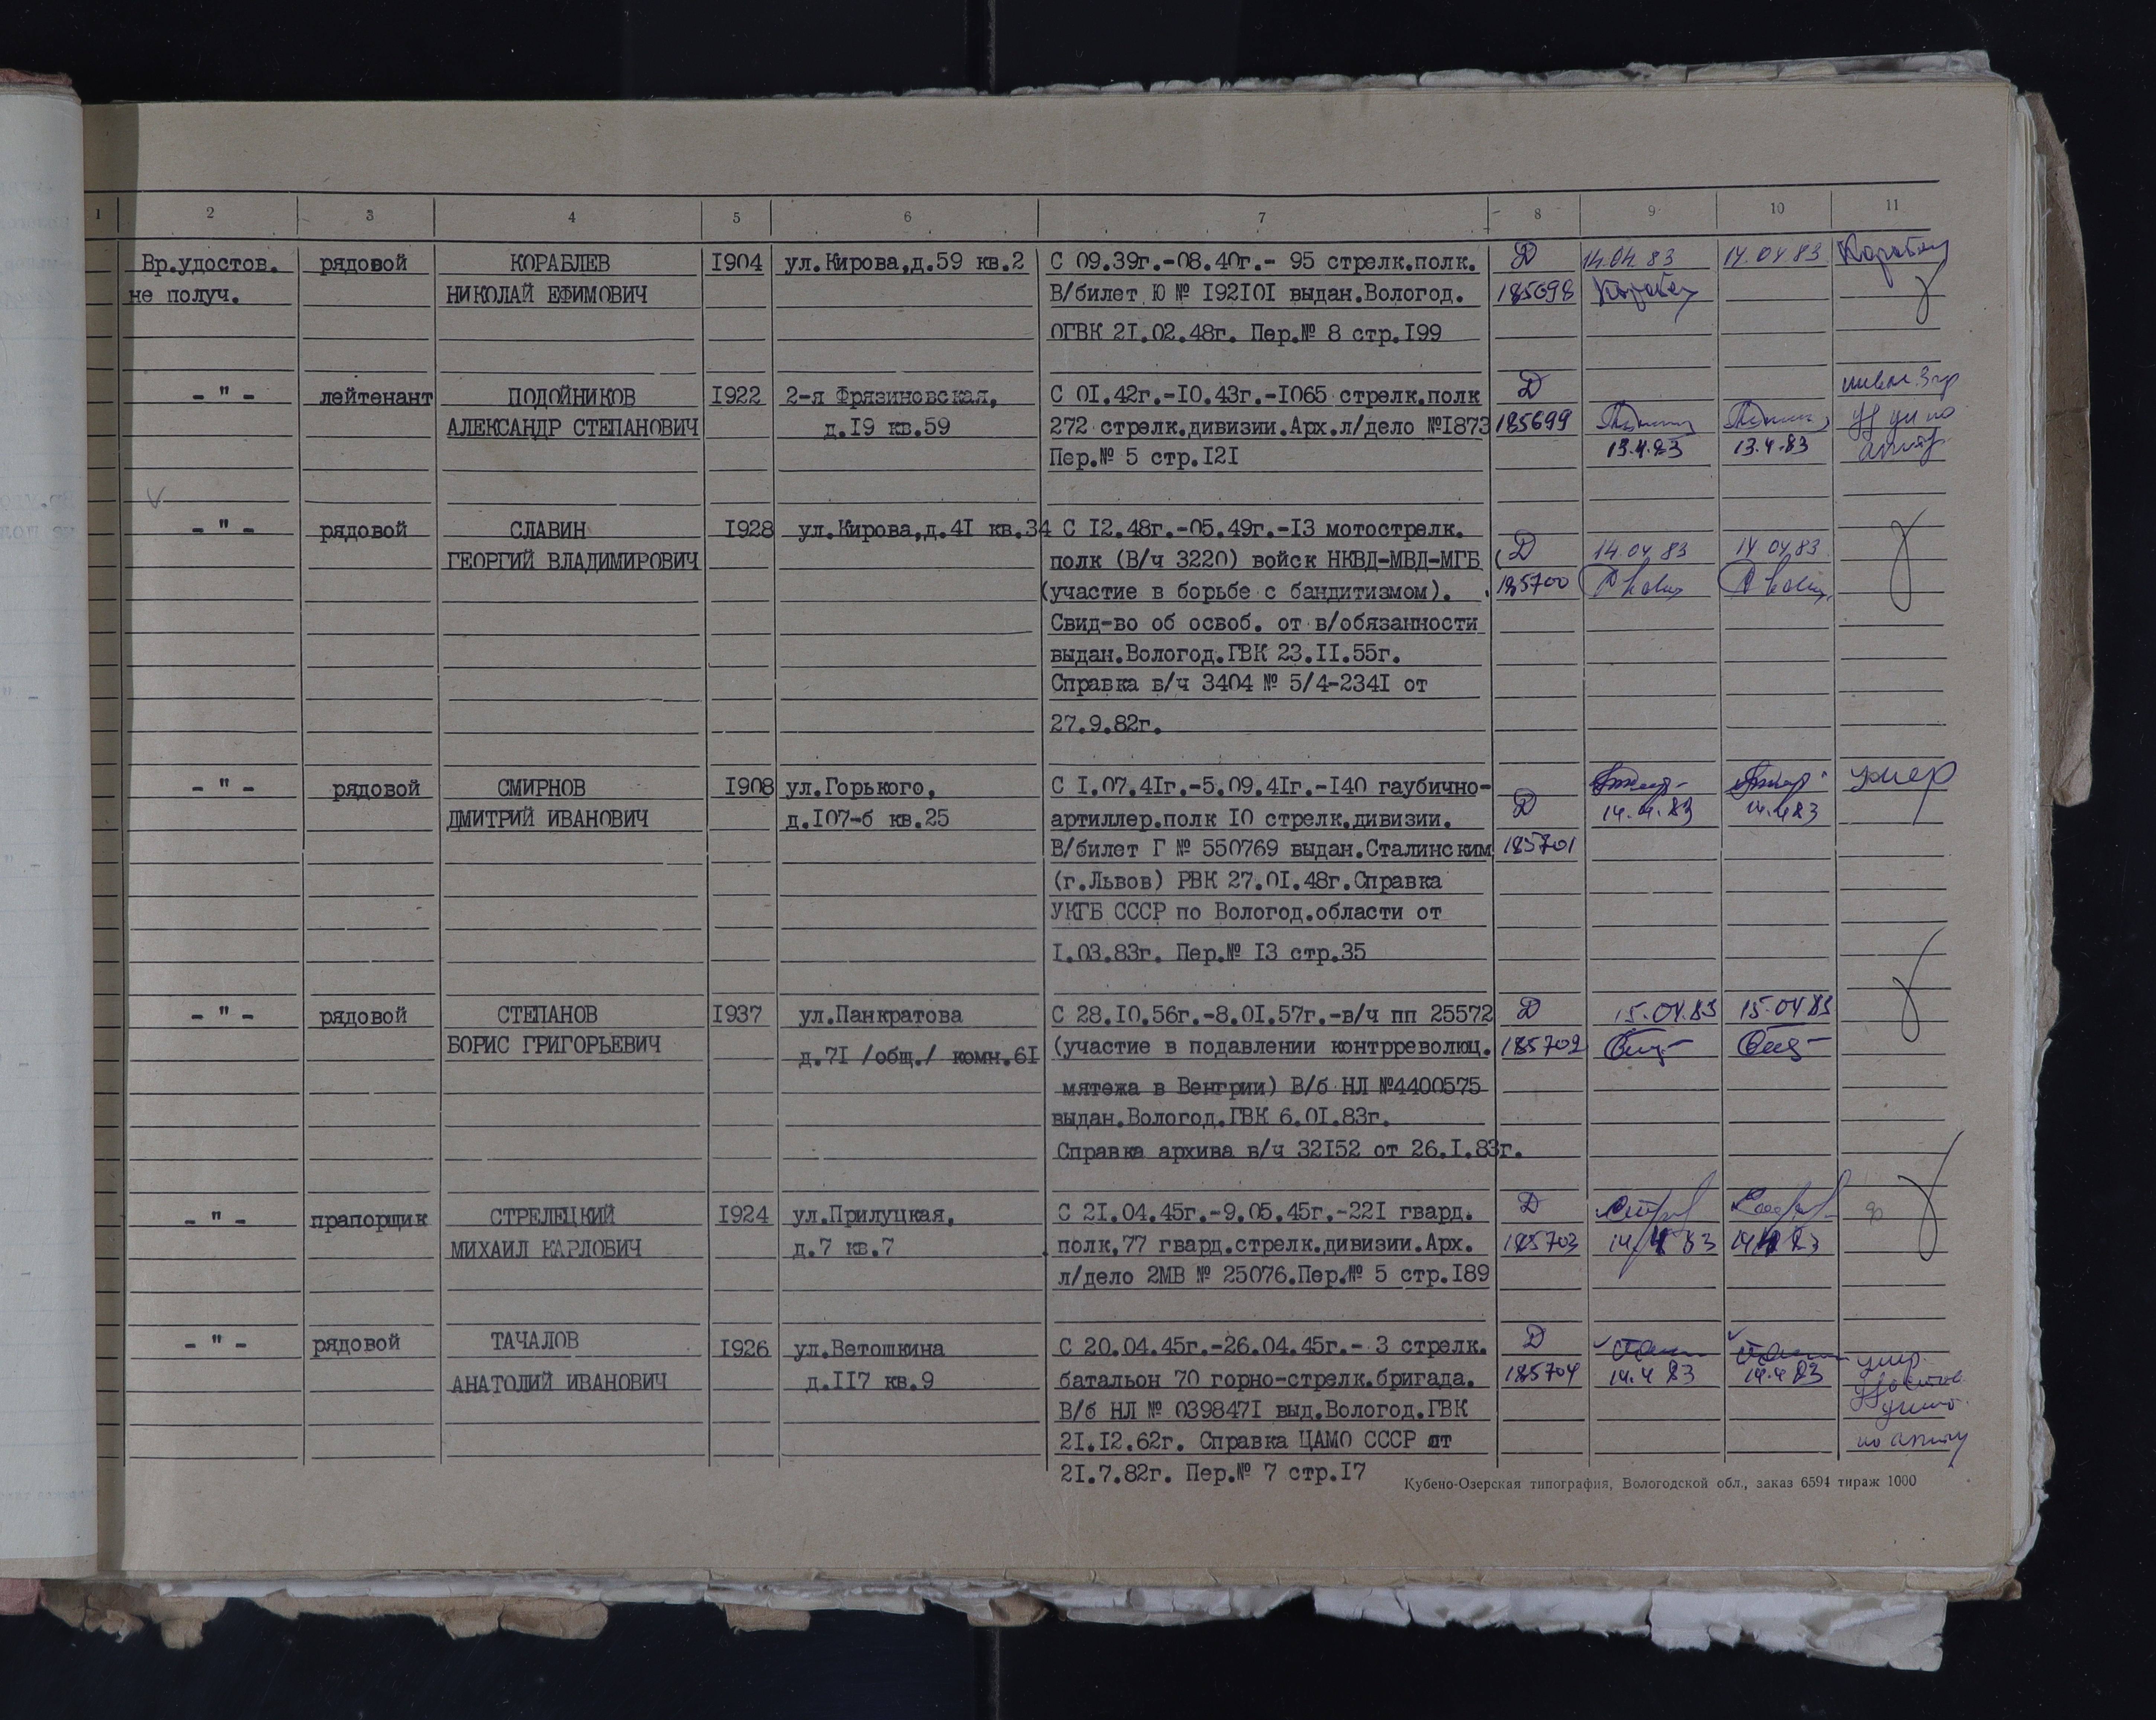 1 2 3 4 5 6 7 8 9 10 11
Вр.удостов. рядовой КОРАБЛЕВ I904 ул.Кирова,д.59 кв.2 С 09.39г.-08.40г.- 95 стрелк.полк. Д 14.04.83 14.04.83
не получ. НИКОЛАЙ ЕФИМОВИЧ В/билет Ю № I92I0I выдан.Вологод. 185698
ОГВК 2I.02.48г. Пер.№ 8 стр.I99
- " - лейтенант ПОДОЙНИКОВ I922 2-я Фрязиновская, С 0I.42г.-I0.43г.-I065 стрелк.полк Д
АЛЕКСАНДР СТЕПАНОВИЧ д.I9 кв.59 272 стрелк.дивизии.Арх.л/дело №I873 185699
Пер.№ 5 стр.I2I 13.4.83 13.4.83
- " - рядовой СЛАВИН I928 ул.Кирова,д.4I кв.34 С I2.48г.-05.49г.-I3 мотострелк.
ГЕОРГИЙ ВЛАДИМИРОВИЧ полк (В/ч 3220) войск НКВД-МВД-МГБ Д 14.04.83 14.04.83
(участие в борьбе с бандитизмом). 185700
Свид-во об освоб. от в/обязанности
выдан.Вологод.ГВК 23.II.55г.
Справка в/ч 3404 № 5/4-234I от
27.9.82г.
- " - рядовой СМИРНОВ I908 ул.Горького, С I.07.4Iг.-5.09.4Iг.-I40 гаубично- умер
ДМИТРИЙ ИВАНОВИЧ д.I07-б кв.25 артиллер.полк I0 стрелк.дивизии. Д 14.4.83 14.4.83
В/билет Г № 550769 выдан.Сталинским 185701
(г.Львов) РВК 27.0I.48г.Справка
УКГБ СССР по Вологод.области от
I.03.83г. Пер.№ I3 стр.35
- " - рядовой СТЕПАНОВ I937 ул.Панкратова С 28.I0.56г.-8.0I.57г.-в/ч пп 25572 Д 15.04.83 15.04.83
БОРИС ГРИГОРЬЕВИЧ д.7I /общ./ комн.6I (участие в подавлении контрреволюц. 185702
мятежа в Венгрии) В/б НЛ №4400575
выдан.Вологод.ГВК 6.0I.83г.
Справка архива в/ч 32I52 от 26.I.83г.
- " - прапорщик СТРЕЛЕЦКИЙ I924 ул.Прилуцкая, С 2I.04.45г.-9.05.45г.-22I гвард. Д
МИХАИЛ КАРЛОВИЧ д.7 кв.7 полк,77 гвард.стрелк.дивизии.Арх. 185703 14.4.83 14.4.83
л/дело 2МВ № 25076.Пер.№ 5 стр.I89
- " - рядовой ТАЧАЛОВ I926 ул.Ветошкина С 20.04.45г.-26.04.45г.- 3 стрелк. Д
АНАТОЛИЙ ИВАНОВИЧ д.II7 кв.9 батальон 70 горно-стрелк.бригада. 185704 14.4.83 14.4.83 умер.
В/б НЛ № 039847I выд.Вологод.ГВК
2I.I2.62г. Справка ЦАМО СССР от
2I.7.82г. Пер.№ 7 стр.I7
Кубено-Озерская типография, Вологодской обл., заказ 6594 тираж 1000